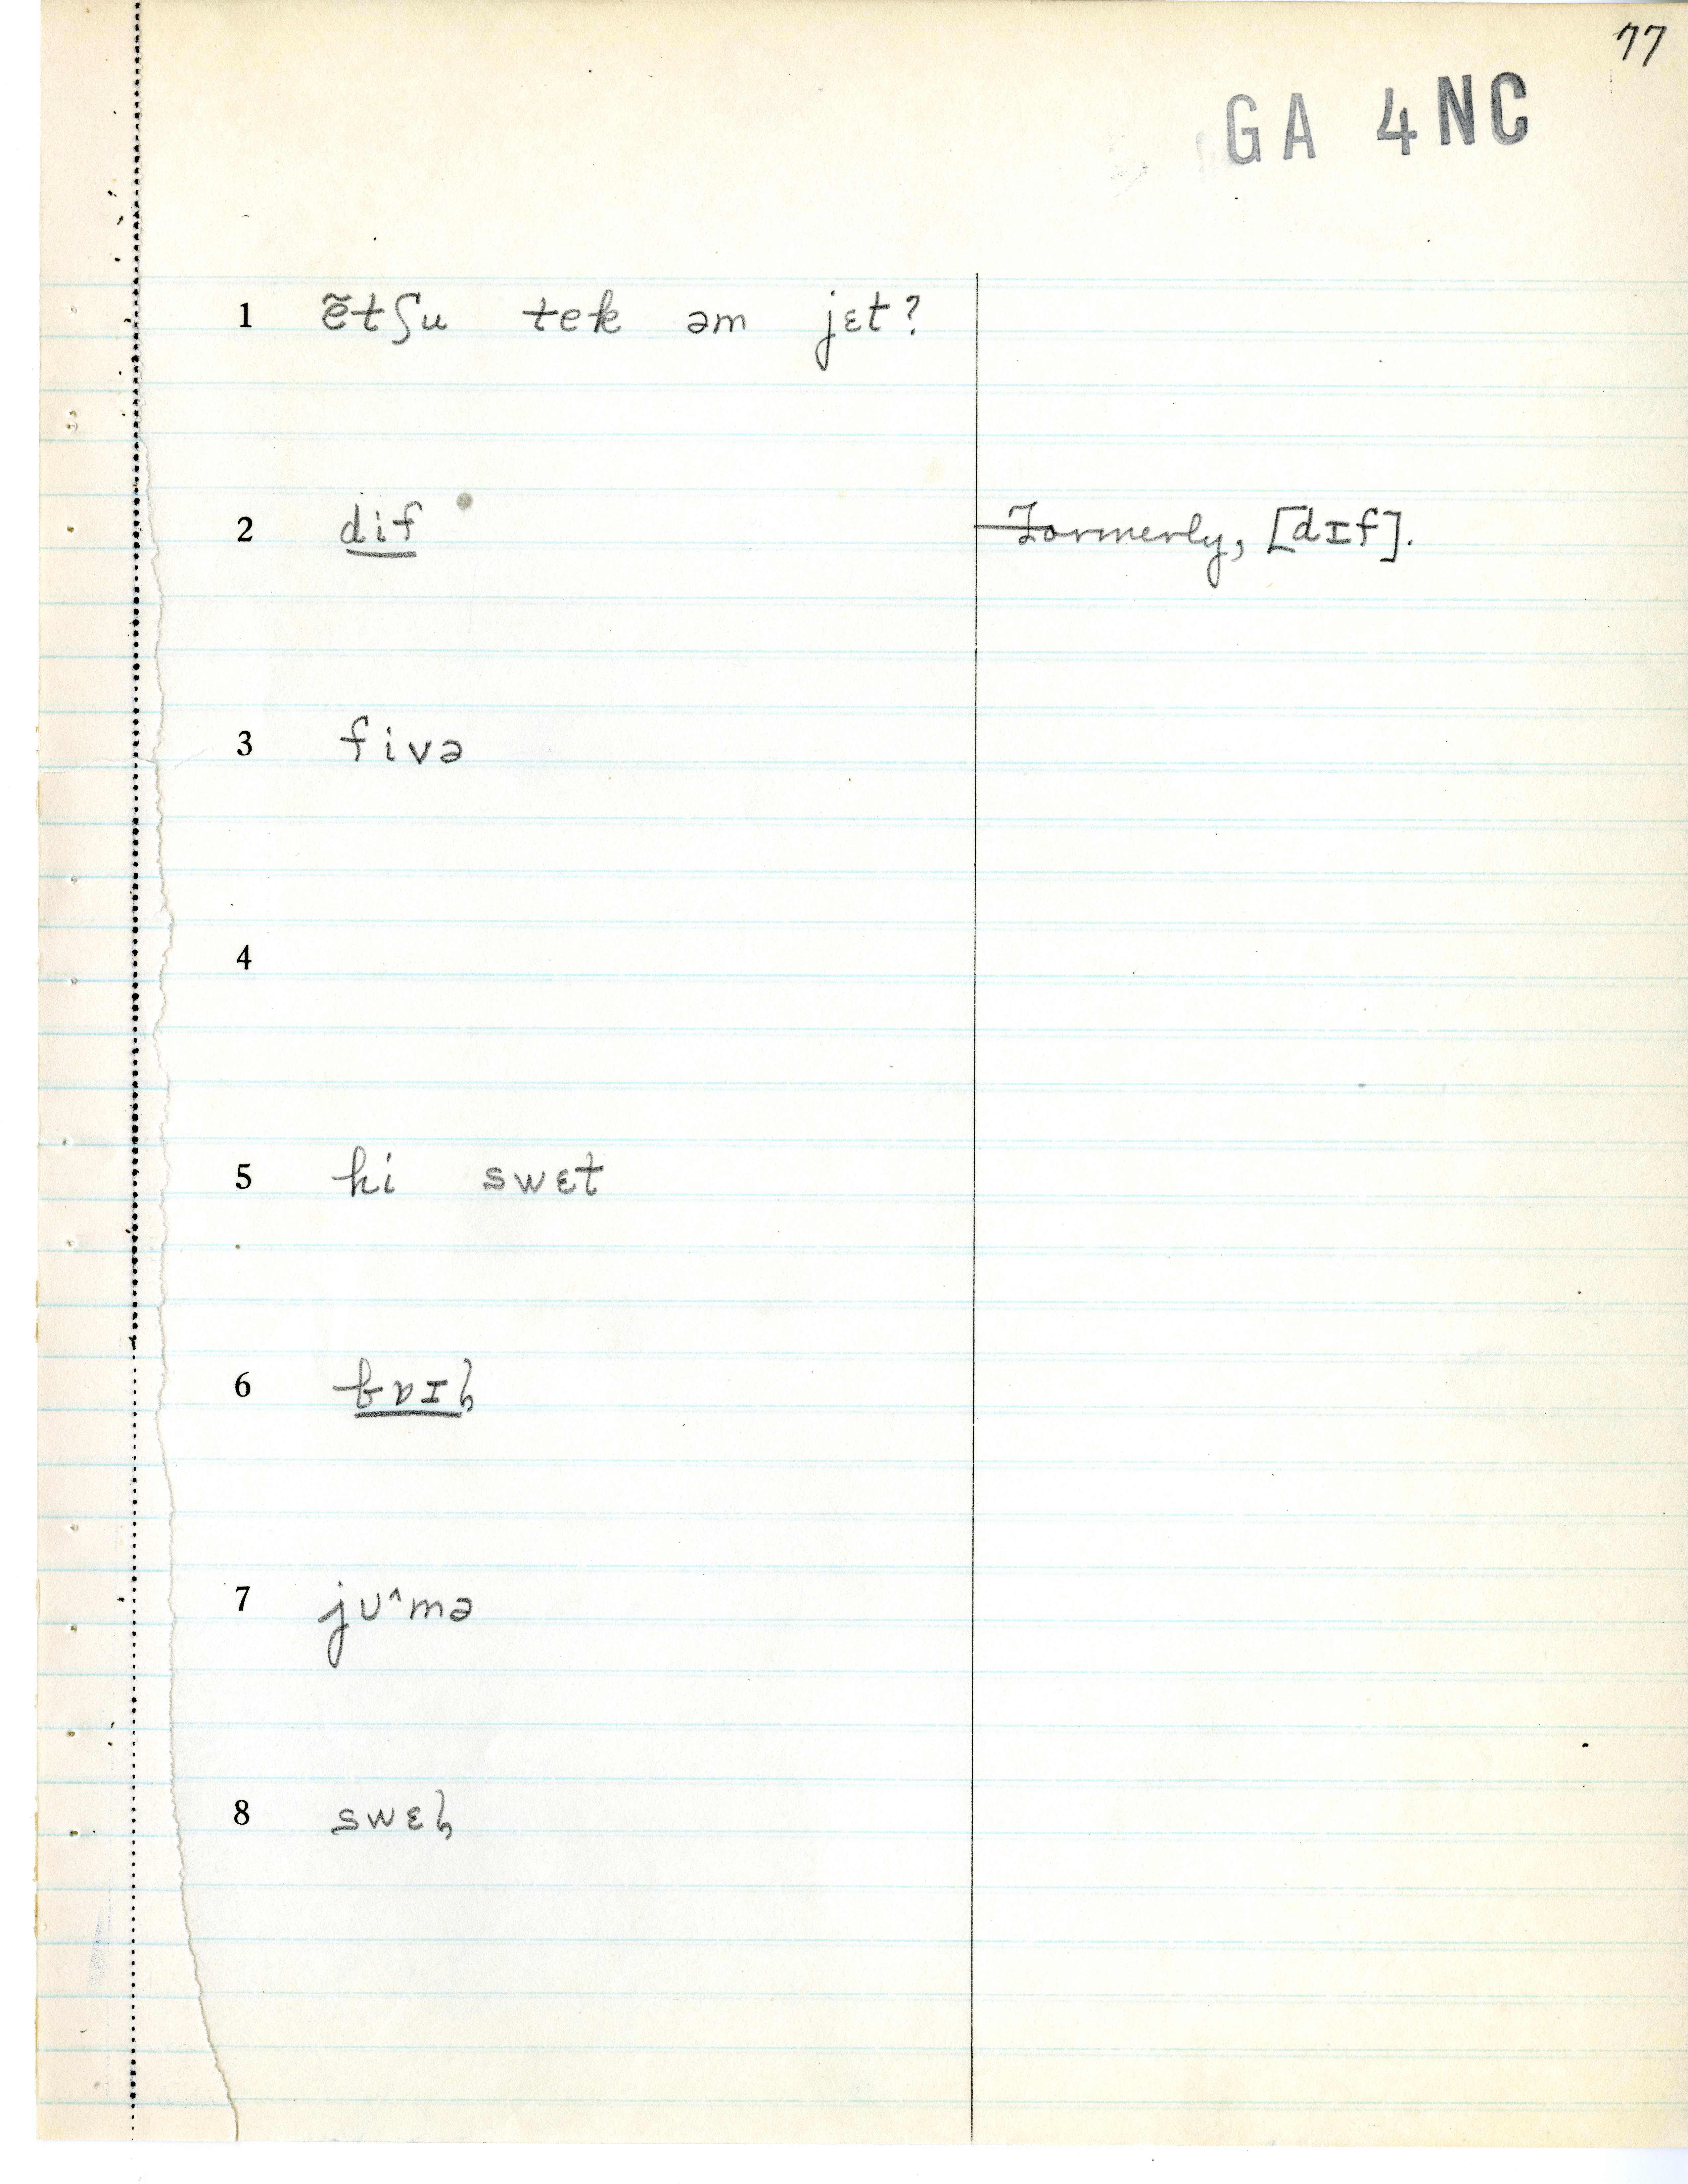 77
GA 4NC
1 ẽtʃu tek əm jɛt?
2 dif — Formerly, [dɪf].
3 fivə
4
5 hi swɛt
6 bɒɪl̩
7 jʊ^mə
8 swɛl̩